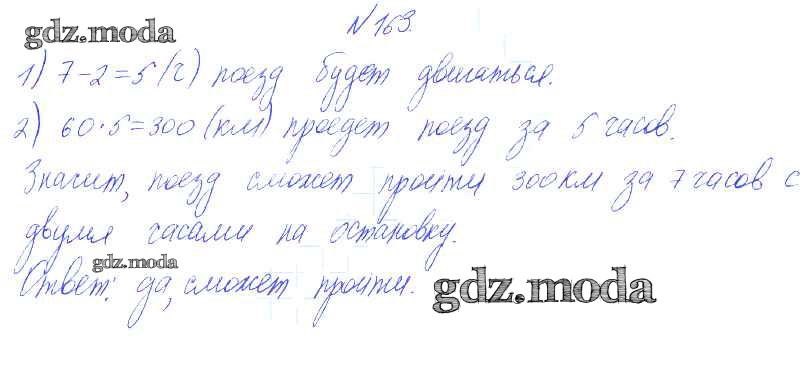 №163.
gdz.moda
1) 7-2=5(ч) поезд будет двигаться.
2) 60·5=300(км) проедет поезд за 5 часов.
Значит, поезд сможет пройти 300 км за 7 часов с
двумя часами на остановку.
gdz.moda
Ответ: да, сможет пройти.
gdz.moda